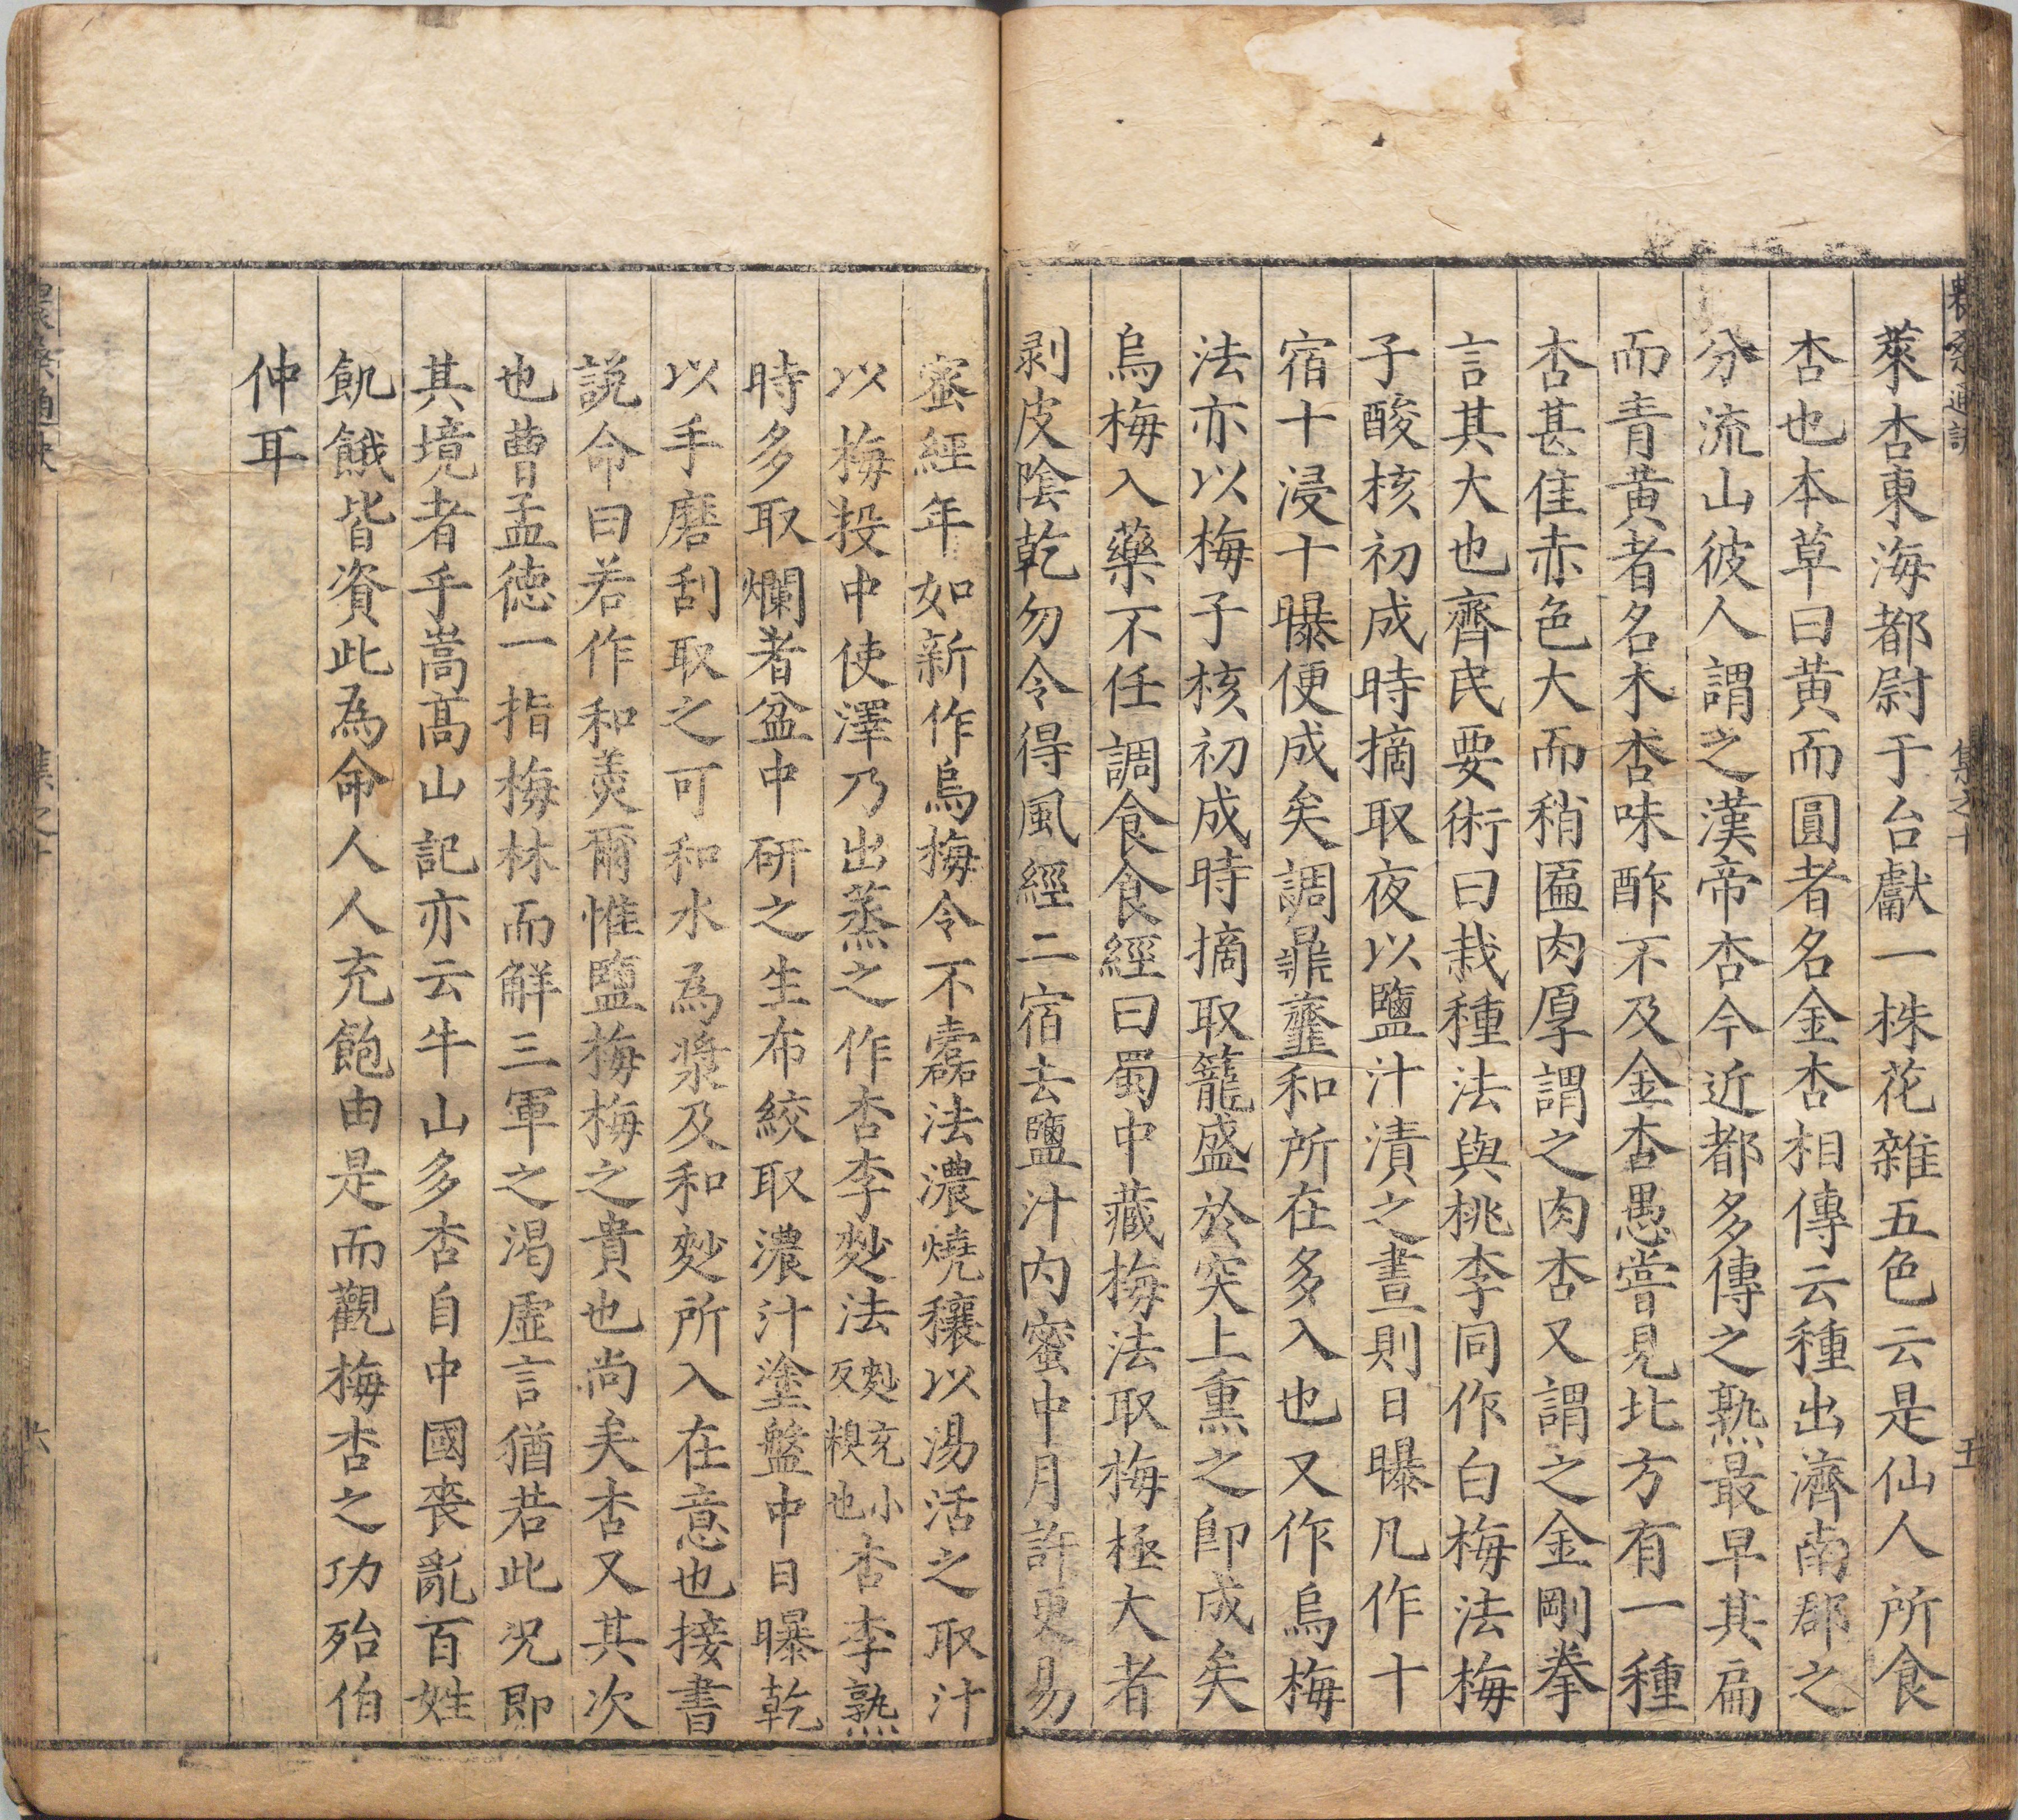 農桑通訣
集之十
五
萊杏東海都尉于台獻一株花雜五色云是仙人所食
杏也本草曰黃而圓者名金杏相傳云種出濟南郡之
分流山彼人謂之漢帝杏今近都多傳之熟最早其扁
而青黃者名木杏味酢不及金杏愚嘗見北方有一種
杏甚佳赤色大而稍匾肉厚謂之肉杏又謂之金剛拳
言其大也齊民要術曰栽種法與桃李同作白梅法梅
子酸核初成時摘取夜以鹽汁漬之晝則日曝凡作十
宿十浸十曝便成矣調鼎虀和所在多入也又作烏梅
法亦以梅子核初成時摘取籠盛於突上熏之卽成矣
烏梅入藥不任調食食經曰蜀中藏梅法取梅極大者
剥皮陰乾勿令得風經二宿去鹽汁内蜜中月許更易
蜜經年如新作烏梅令不蠹法濃燒穰以湯活之取汁
以梅投中使澤乃出蒸之作杏李麨法麨充小反糗也杏李熟
時多取爛者盆中研之生布絞取濃汁塗盤中日曝乾
以手磨刮取之可和水為漿及和麨所入在意也接書
說命曰若作和羹爾惟鹽梅梅之貴也尚矣杏又其次
也曹孟德一指梅林而解三軍之渴虛言猶若此况即
其境者乎嵩高山記亦云牛山多杏自中國喪亂百姓
飢餓皆資此為命人人充飽由是而觀梅杏之功殆伯
仲耳
農桑通訣
集之十
六